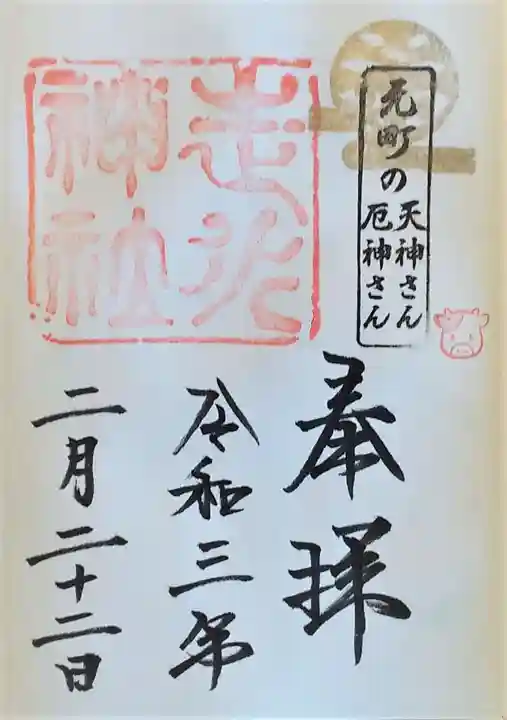 元町の
天神さん
厄神さん
走水
神社
奉拝
令和三年
二月二十二日